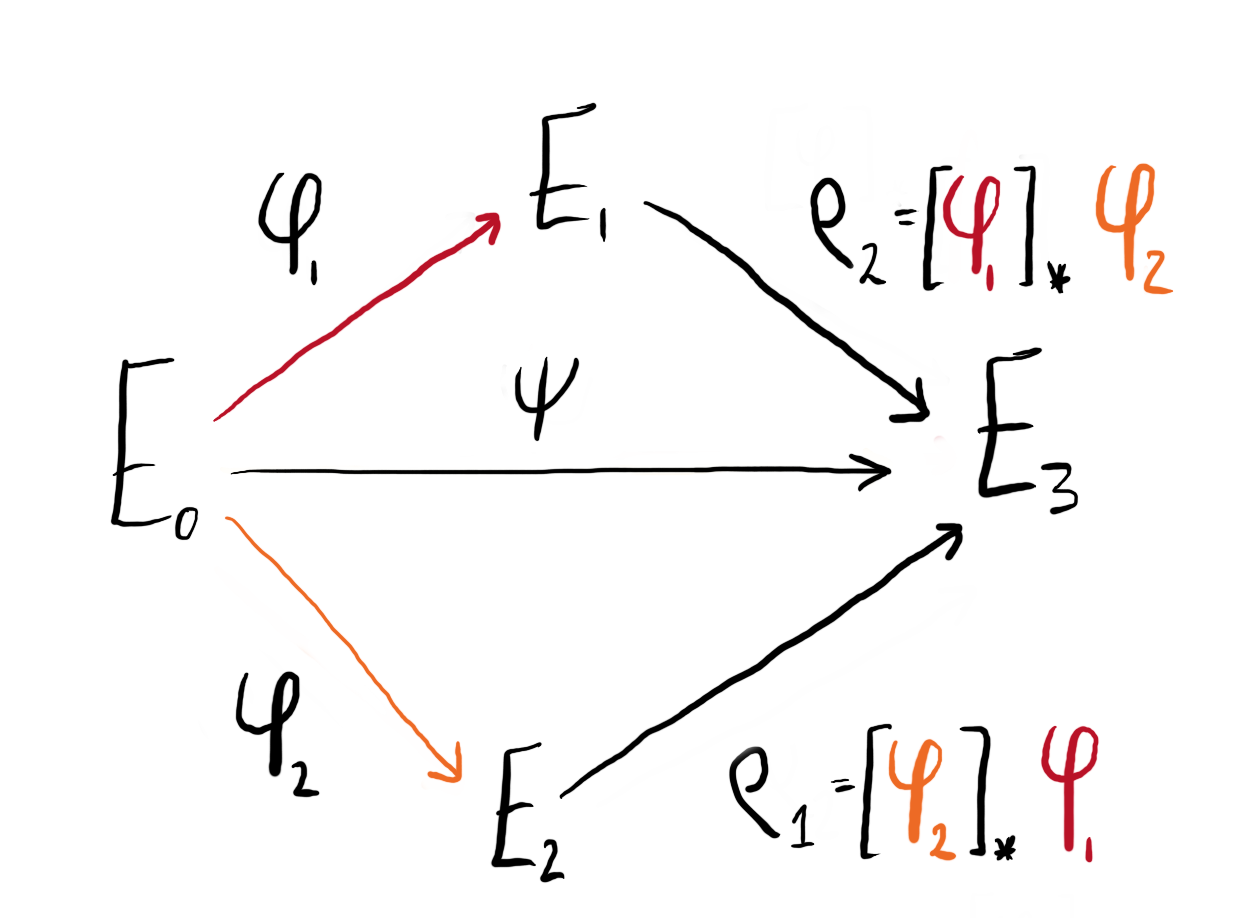 E₁
φ₁
ρ₂ = [φ₁]_* φ₂
ψ
E₀
E₃
φ₂
E₂
ρ₁ = [φ₂]_* φ₁